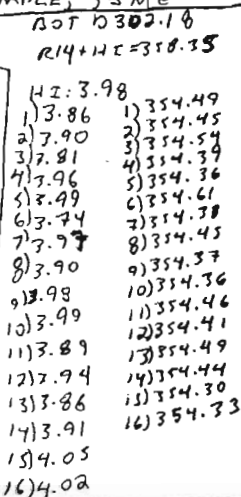 BOT D302.18
R14+HI=358.35
HI:3.98
1)3.86
2)3.90
3)3.81
4)3.96
5)3.99
6)3.74
7)3.97
8)3.90
9)3.98
10)3.99
11)3.89
12)3.94
13)3.86
14)3.91
15)4.05
16)4.02
1)354.49
2)354.45
3)354.54
4)354.39
5)354.36
6)354.61
7)354.38
8)354.45
9)354.37
10)354.36
11)354.46
12)354.41
13)354.49
14)354.44
15)354.30
16)354.33